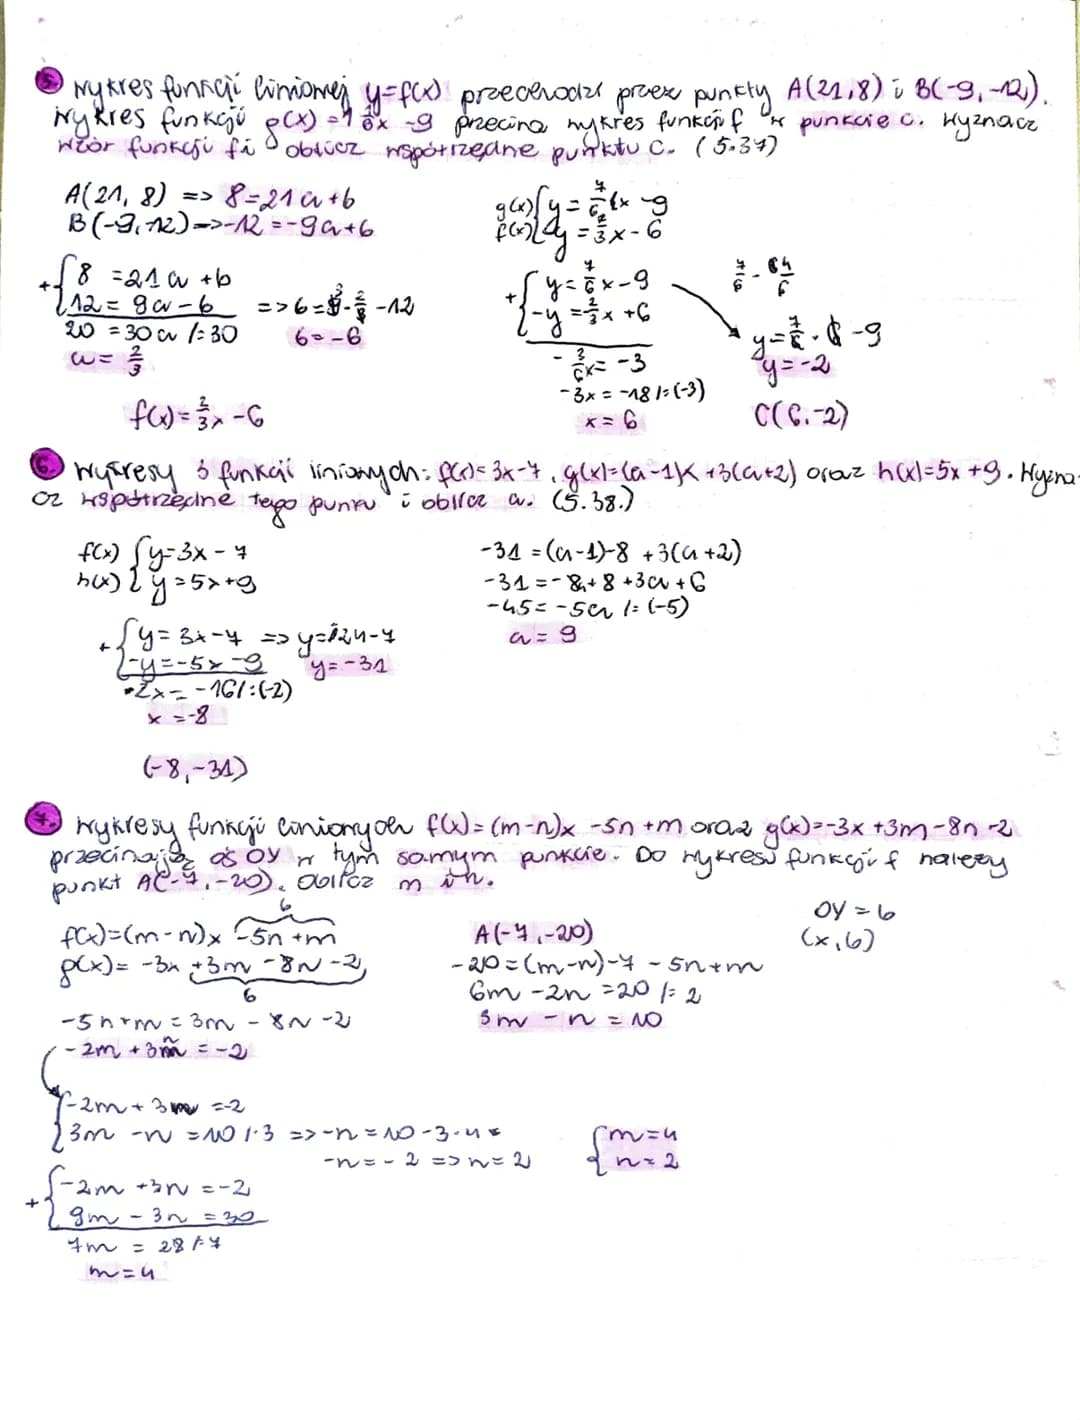 5. Wykres funkcji liniowej y=f(x) przechodzi przez punkty A(21,8) i B(-9,-12).
Wykres funkcji g(x)=1 1/6x -9 przecina wykres funkcji f w punkcie C. Wyznacz
wzór funkcji f i oblicz współrzędne punktu C. (5.37)
A(21,8) => 8=21a+b
B(-9,-12) => -12=-9a+b
+{8 =21a+b
12= 9a-b
20 =30a /:30
a= 2/3
=> b=9·2/3-12
b=-6
f(x)=2/3x-6
g(x){y=7/6x-9
f(x){y=2/3x-6
+{y=7/6x-9
-y=-2/3x+6
-3/6x=-3
-3x=-18/:(-3)
x=6
y=7/6·6-9
y=-2
C(6,-2)
6. Wykresy 3 funkcji liniowych: f(x)=3x-7, g(x)=(a-1)x+3(a+2) oraz h(x)=5x+9. Wyzna-
cz współrzędne tego punktu i oblicz a. (5.38.)
f(x){y=3x-7
h(x){y=5x+9
+{y=3x-7 => y=-24-7
-y=-5x-9 y=-31
-2x=-16/:(-2)
x=-8
(-8,-31)
-31=(a-1)-8+3(a+2)
-31=-8a+8+3a+6
-45=-5a/:(-5)
a=9
7. Wykresy funkcji liniowych f(x)=(m-n)x -5n+m oraz g(x)=-3x+3m-8n-2
przecinają oś OY w tym samym punkcie. Do wykresu funkcji f należy
punkt A(-7,-20). Oblicz m i n.
b
f(x)=(m-n)x -5n+m
g(x)= -3x +3m-8n-2
b
-5n+m=3m-8n-2
-2m+3n=-2
A(-7,-20)
-20=(m-n)-7-5n+m
6m-2n=20/:2
3m-n=10
OY=b
(x,b)
{-2m+3n=-2
3m-n=10/·3 => -n=10-3·4
-n=-2 => n=2
{m=4
n=2
+{-2m+3n=-2
9m-3n=30
7m=28/:7
m=4